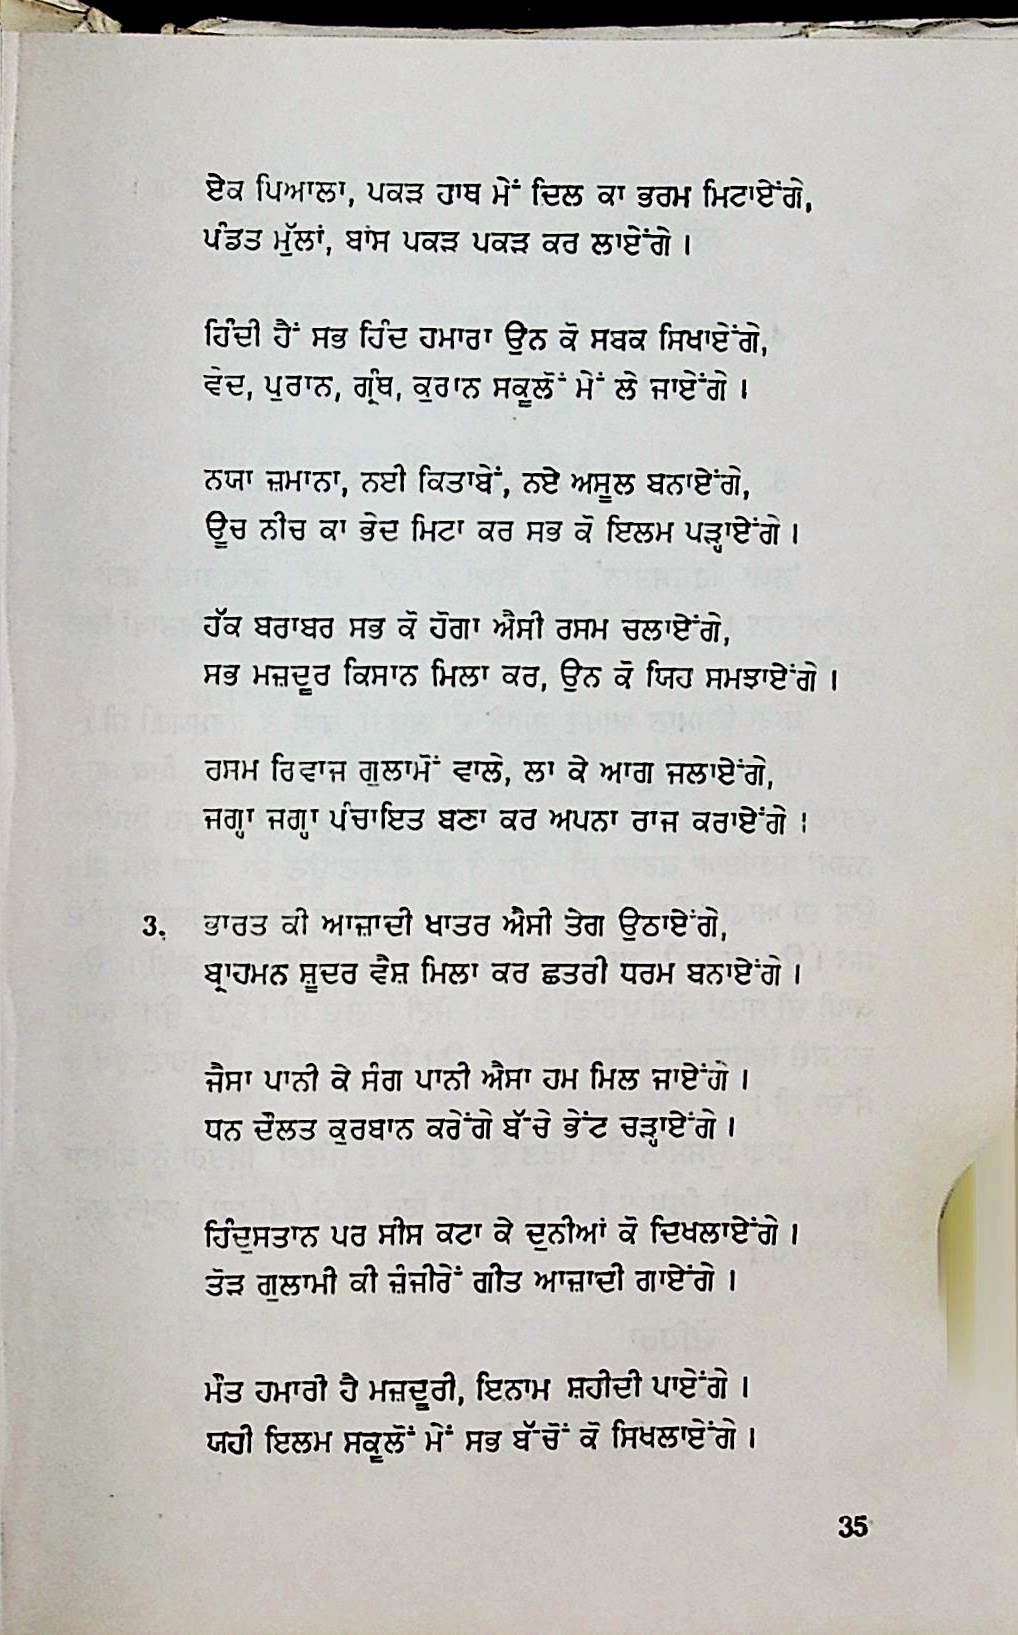 ਏਕ ਪਿਆਲਾ, ਪਕੜ ਹਾਥ ਮੇਂ ਦਿਲ ਕਾ ਭਰਮ ਮਿਟਾਏਂਗੇ,
ਪੰਡਤ ਮੁੱਲਾਂ, ਬਾਂਸ ਪਕੜ ਪਕੜ ਕਰ ਲਾਏਂਗੇ ।
ਹਿੰਦੀ ਹੈਂ ਸਭ ਹਿੰਦ ਹਮਾਰਾ ਉਨ ਕੋ ਸਬਕ ਸਿਖਾਏਂਗੇ,
ਵੇਦ, ਪੁਰਾਨ, ਗ੍ਰੰਥ, ਕੁਰਾਨ ਸਕੂਲੋਂ ਮੇਂ ਲੇ ਜਾਏਂਗੇ ।
ਨਯਾ ਜ਼ਮਾਨਾ, ਨਈ ਕਿਤਾਬੇਂ, ਨਏ ਅਸੂਲ ਬਨਾਏਂਗੇ,
ਊਚ ਨੀਚ ਕਾ ਭੇਦ ਮਿਟਾ ਕਰ ਸਭ ਕੋ ਇਲਮ ਪੜ੍ਹਾਏਂਗੇ ।
ਹੱਕ ਬਰਾਬਰ ਸਭ ਕੋ ਹੋਗਾ ਐਸੀ ਰਸਮ ਚਲਾਏਂਗੇ,
ਸਭ ਮਜ਼ਦੂਰ ਕਿਸਾਨ ਮਿਲਾ ਕਰ, ਉਨ ਕੋ ਯਿਹ ਸਮਝਾਏਂਗੇ ।
ਰਸਮ ਰਿਵਾਜ ਗੁਲਾਮੋਂ ਵਾਲੇ, ਲਾ ਕੇ ਆਗ ਜਲਾਏਂਗੇ,
ਜਗ੍ਹਾ ਜਗ੍ਹਾ ਪੰਚਾਇਤ ਬਣਾ ਕਰ ਅਪਨਾ ਰਾਜ ਕਰਾਏਂਗੇ ।
3. ਭਾਰਤ ਕੀ ਆਜ਼ਾਦੀ ਖਾਤਰ ਐਸੀ ਤੇਗ ਉਠਾਏਂਗੇ,
ਬ੍ਰਾਹਮਨ ਸ਼ੂਦਰ ਵੈਸ਼ ਮਿਲਾ ਕਰ ਛਤਰੀ ਧਰਮ ਬਨਾਏਂਗੇ ।
ਜੈਸਾ ਪਾਨੀ ਕੇ ਸੰਗ ਪਾਨੀ ਐਸਾ ਹਮ ਮਿਲ ਜਾਏਂਗੇ ।
ਧਨ ਦੌਲਤ ਕੁਰਬਾਨ ਕਰੇਂਗੇ ਬੱਚੇ ਭੇਂਟ ਚੜ੍ਹਾਏਂਗੇ ।
ਹਿੰਦੁਸਤਾਨ ਪਰ ਸੀਸ ਕਟਾ ਕੇ ਦੁਨੀਆਂ ਕੋ ਦਿਖਲਾਏਂਗੇ ।
ਤੋੜ ਗੁਲਾਮੀ ਕੀ ਜ਼ੰਜੀਰੇਂ ਗੀਤ ਆਜ਼ਾਦੀ ਗਾਏਂਗੇ ।
ਮੌਤ ਹਮਾਰੀ ਹੈ ਮਜ਼ਦੂਰੀ, ਇਨਾਮ ਸ਼ਹੀਦੀ ਪਾਏਂਗੇ ।
ਯਹੀ ਇਲਮ ਸਕੂਲੋਂ ਮੇਂ ਸਭ ਬੱਚੋਂ ਕੋ ਸਿਖਲਾਏਂਗੇ ।
35